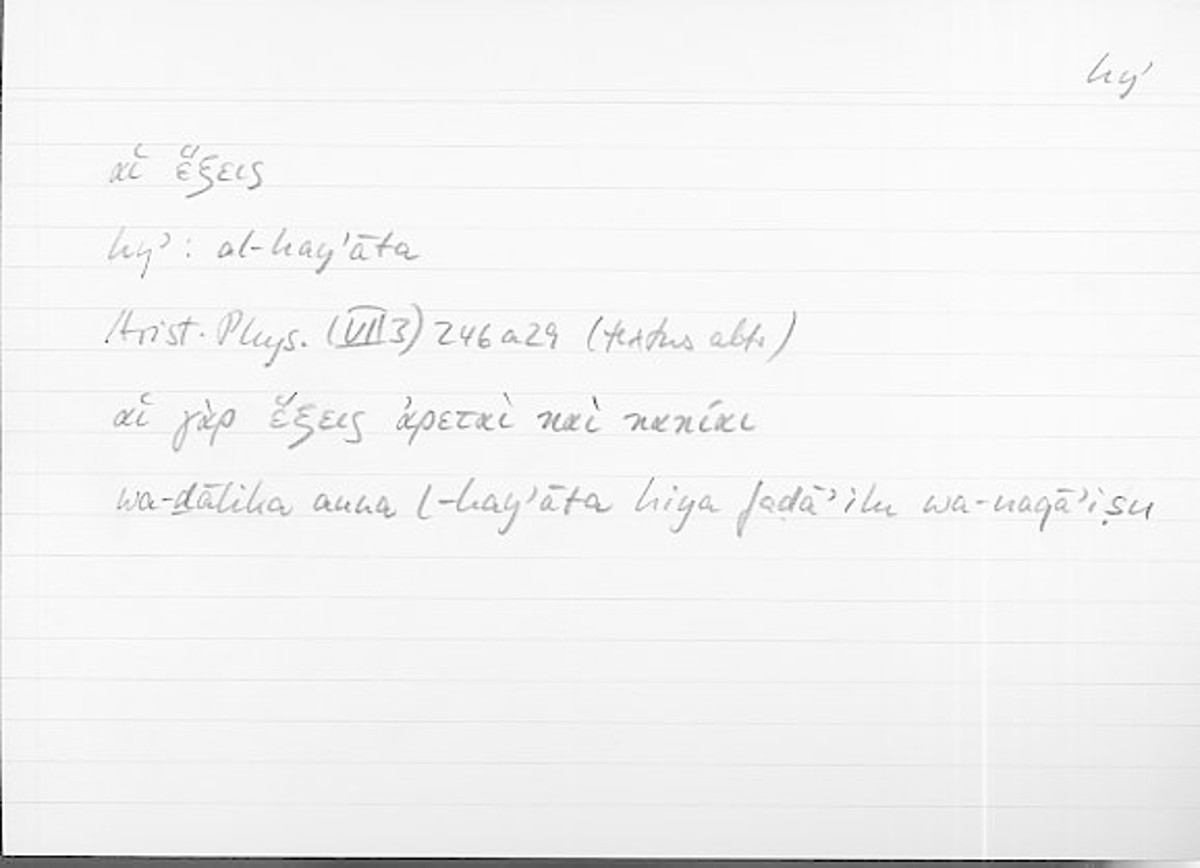 hyʾ
αἱ ἕξεις
hyʾ : al-hayʾāta
Arist. Phys. (VII 3) 246a29 (textus alter)
αἱ γὰρ ἕξεις ἀρεταὶ καὶ κακίαι
wa-ḏālika anna l-hayʾāta hiya faḍāʾilu wa-naqāʾiṣu